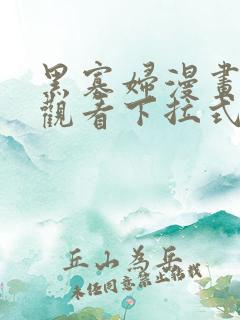 黑寡婦漫畫
觀看下拉式
丘山為岳
未任同意禁止轉載